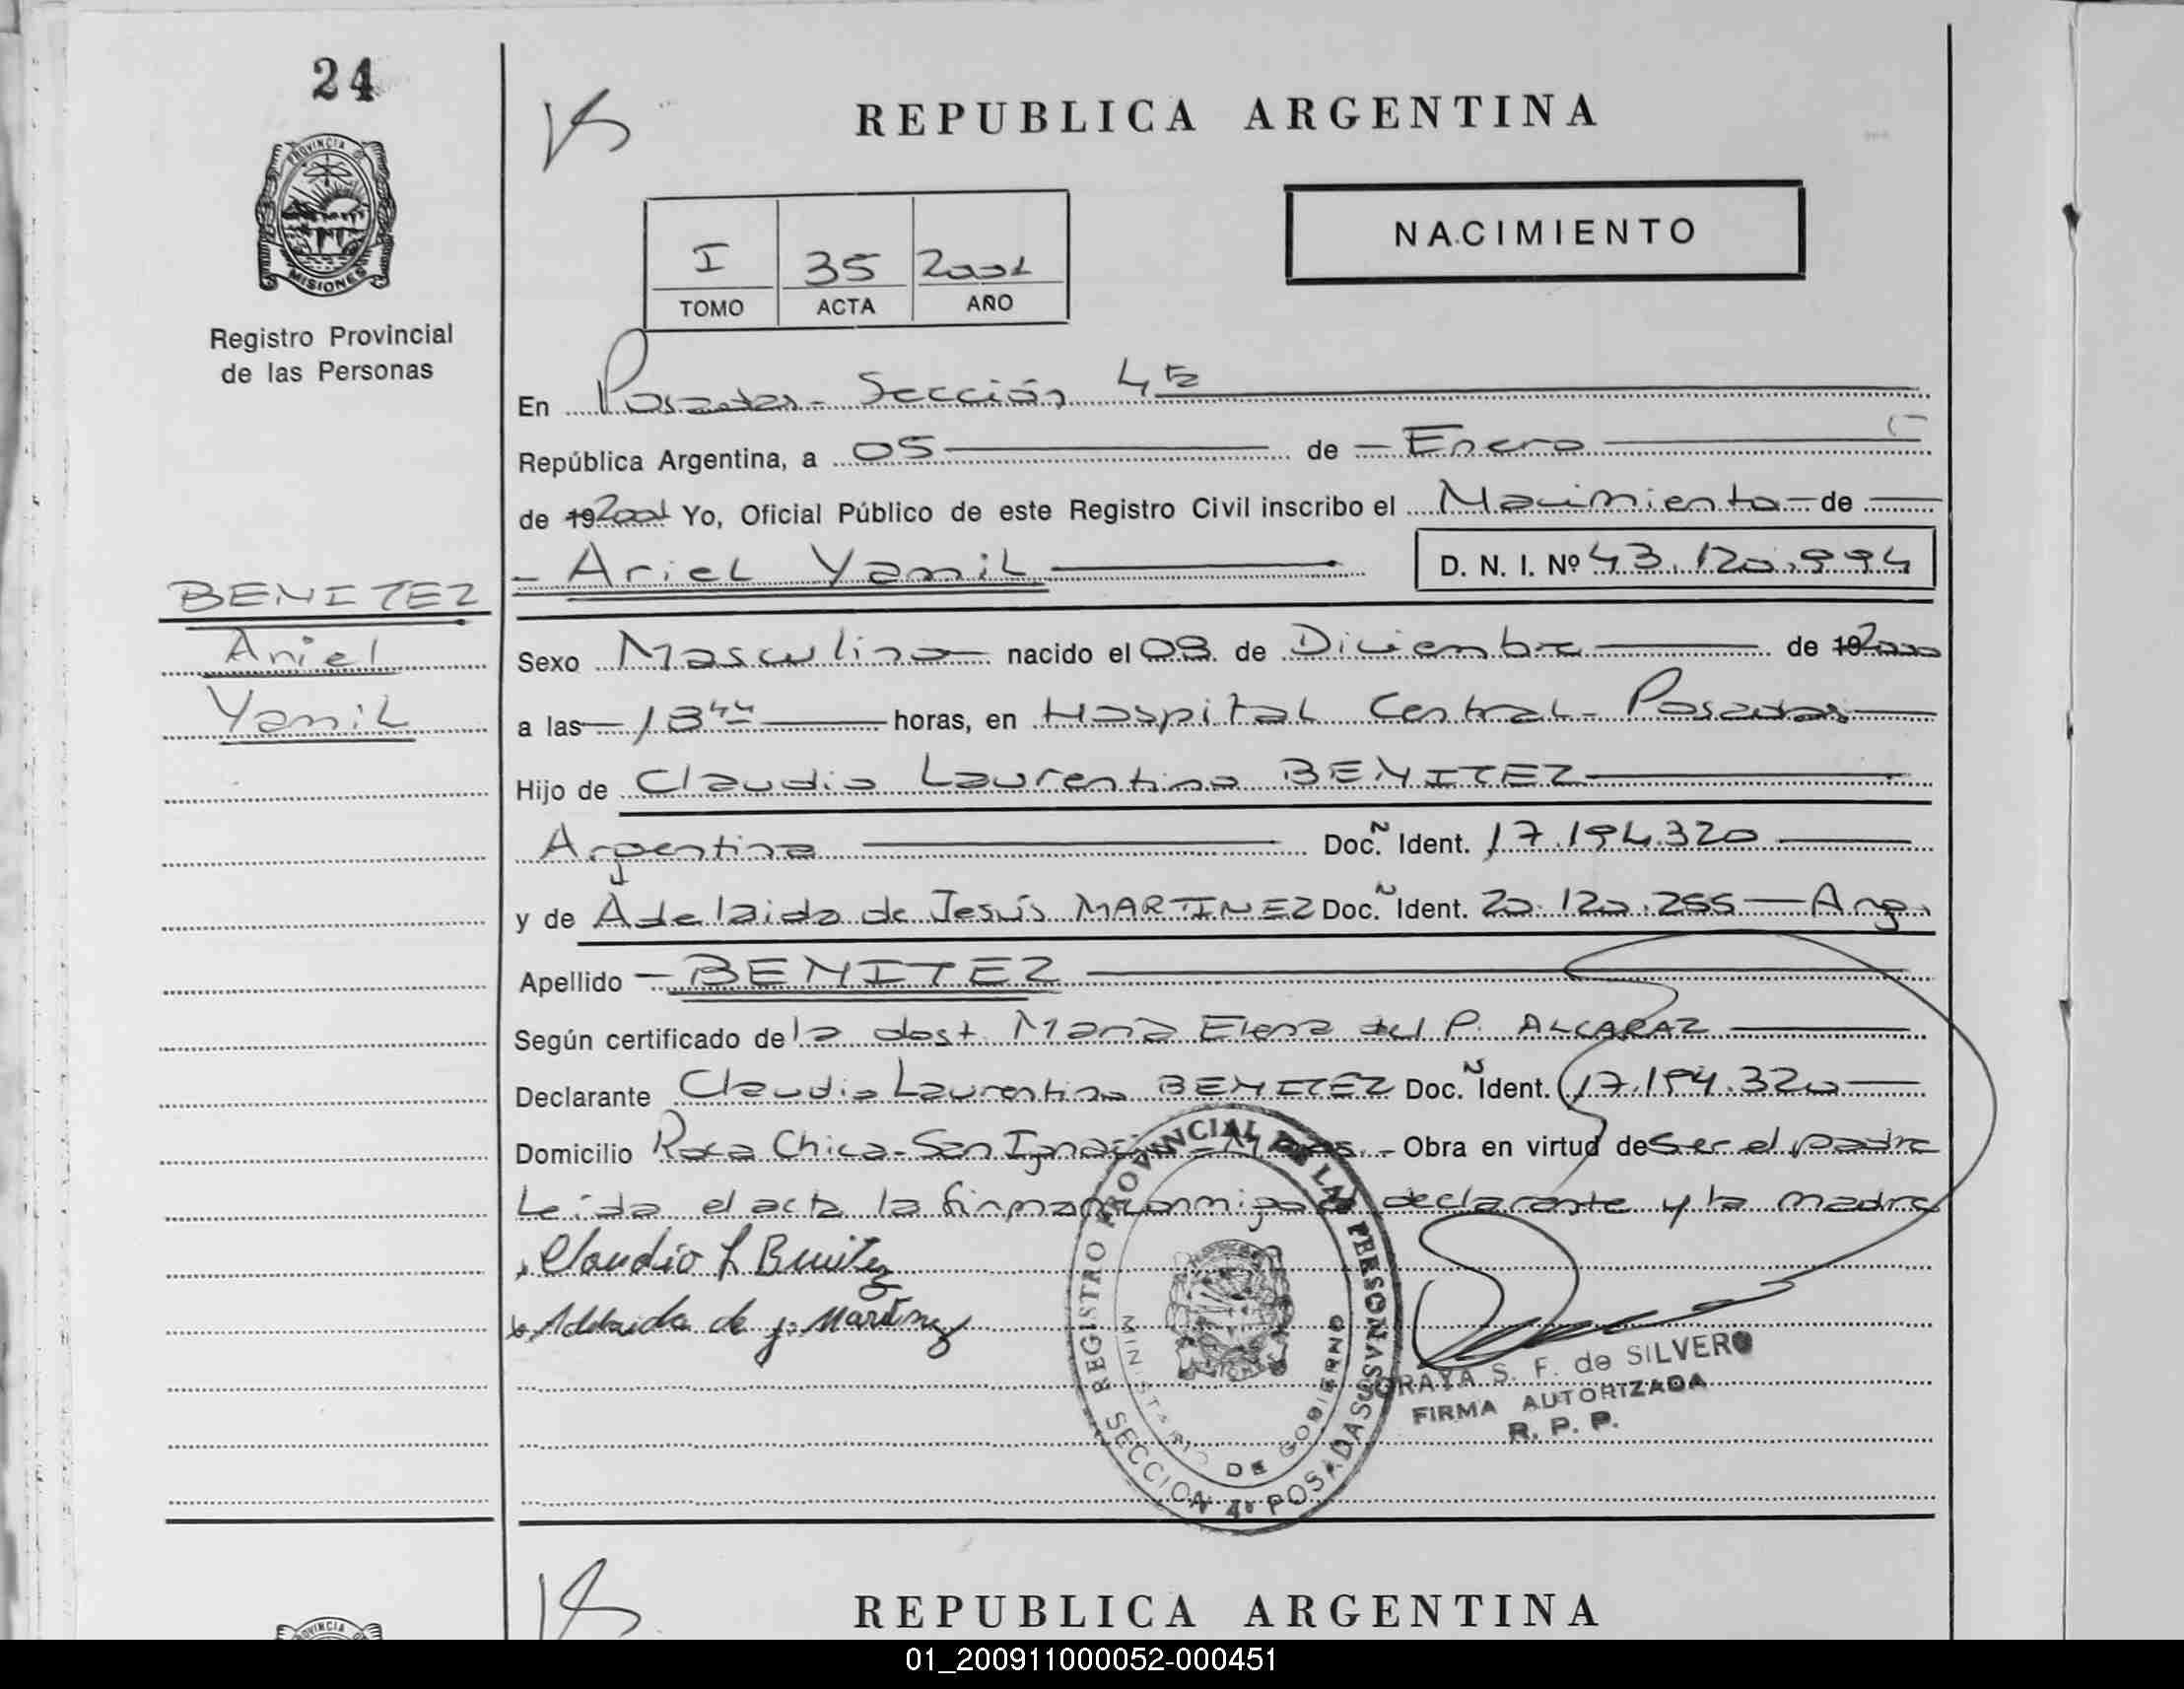 24
PROVINCIA DE
MISIONES
Registro Provincial
de las Personas
REPUBLICA ARGENTINA
NACIMIENTO
I 35 2001
TOMO ACTA AÑO
En Posadas - Sección 4ta
República Argentina, a 05 de Enero
de 192001 Yo, Oficial Público de este Registro Civil inscribo el Nacimiento de
- Ariel Yamil D. N. I. Nº 43.120.994
BENITEZ
Ariel
Yamil
Sexo Masculino nacido el 08 de Diciembre de 192000
a las 18 44 horas, en Hospital Central - Posadas
Hijo de Claudio Laurentino BENITEZ
Argentina Doc. Ident. 17.194.320
y de Adelaida de Jesús MARTINEZ Doc. Ident. 20.120.255 - Arg.
Apellido - BENITEZ
Según certificado de la obst. María Elena del P. ALCARAZ
Declarante Claudio Laurentino BENITEZ Doc. Ident. 17.194.320
Domicilio Roca Chica - San Ignacio - Obra en virtud de ser el padre
Leída el acta la firman conmigo el declarante y la madre
Claudio L Benitez
Adelaida de J. Martinez
REGISTRO PROVINCIAL DE LAS PERSONAS
MINISTERIO DE GOBIERNO
SECCION 4ª POSADAS
SORAYA S. F. de SILVERO
FIRMA AUTORIZADA
R. P. P.
REPUBLICA ARGENTINA
PROVINCIA
01_200911000052-000451